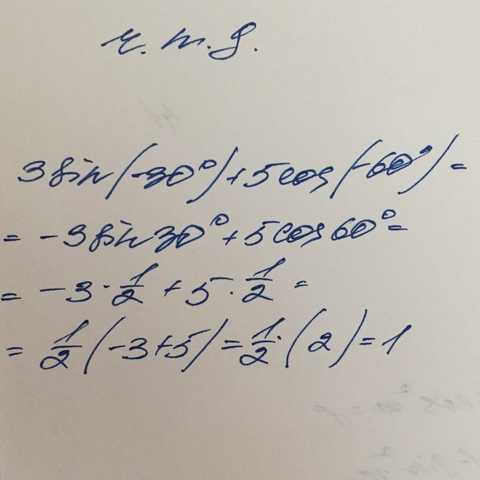 3 sin(-30°)+5 cos(-60°)=
= -3 sin 30°+5 cos 60°=
= -3·1/2 + 5·1/2 =
= 1/2 (-3+5)=1/2·(2)=1